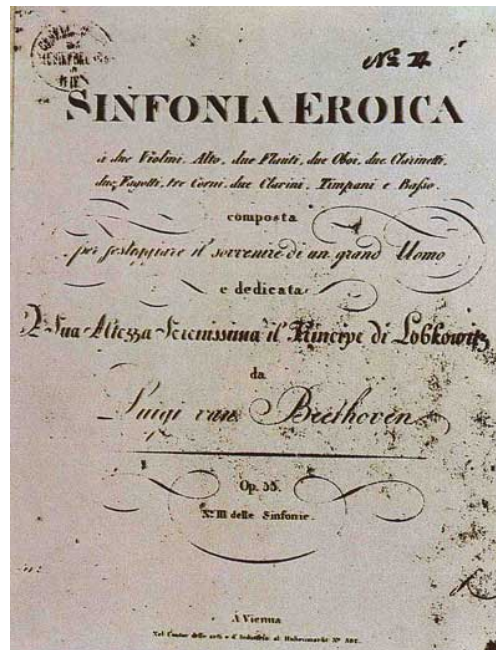 WIEN
No II
SINFONIA EROICA
à due Violini, Alto, due Flauti, due Oboi, due Clarinetti,
due Fagotti, tre Corni, due Clarini, Timpani e Basso.
composta
per festeggiare il sovvenire di un grand Uomo
e dedicata
A Sua Altezza Serenissima il Principe di Lobkowitz
da
Luigi van Beethoven
Op. 55.
No III delle Sinfonie.
A Vienna
Nel Contor delle arti e d'Industria al Hohenmarkt No 582.